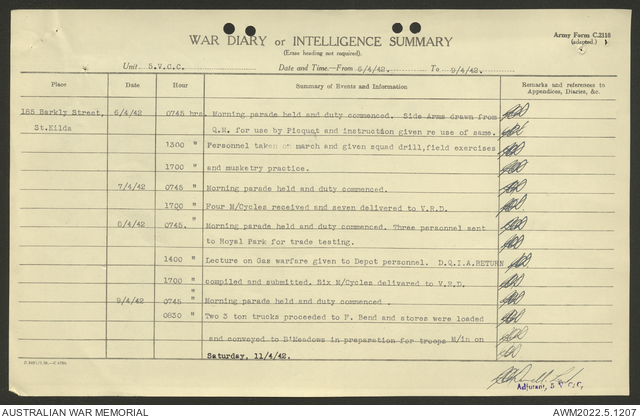 WAR DIARY or INTELLIGENCE SUMMARY
(Erase heading not required).
Army Form C.2118
(adapted.)
Unit 5.V.C.C. Date and Time.—From 6/4/42. To 9/4/42.
Place Date Hour Summary of Events and Information Remarks and references to Appendices, Diaries, &c.
185 Barkly Street, 6/4/42 0745 hrs. Morning parade held and duty commenced. Side Arms drawn from
St.Kilda Q.M. for use by Picquet and instruction given re use of same.
1300 " Personnel taken on march and given squad drill,field exercises
1700 " and musketry practice.
7/4/42 0745 " Morning parade held and duty commenced.
1700 " Four M/Cycles received and seven delivered to V.R.D.
8/4/42 0745. " Morning parade held and duty commenced. Three personnel sent
to Royal Park for trade testing.
1400 " Lecture on Gas warfare given to Depot personnel. D.Q.I.A.RETURN
1700 " compiled and submitted. Six M/Cycles delivered to V.R.D.
9/4/42 0745 " Morning parade held and duty commenced .
0830 " Two 3 ton trucks proceeded to F. Bend and stores were loaded
and conveyed to B'Meadows in preparation for troops M/in on
Saturday, 11/4/42.
Adjutant, 5 V.C.C.
AUSTRALIAN WAR MEMORIAL
AWM2022.5.1207